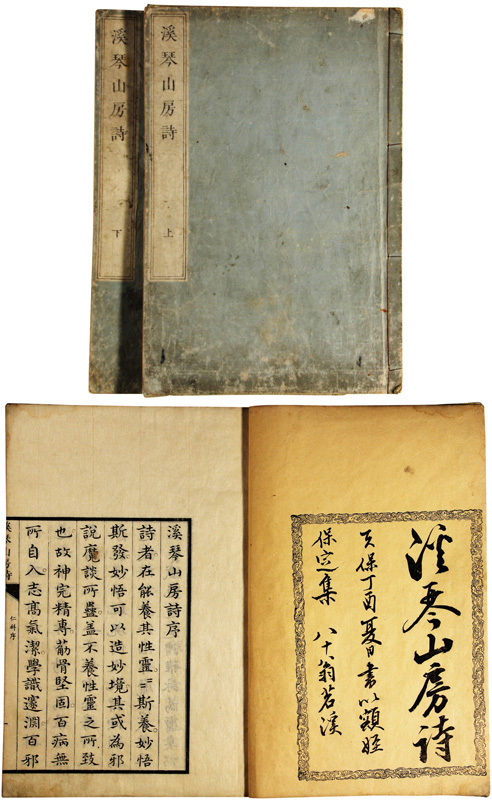 溪琴山房詩
上
溪琴山房詩
下
溪琴山房詩
天保丁酉夏日書以額姪
保定集 八十翁茗溪
溪琴山房詩序
詩者在能養其性靈〻斯養妙悟
斯發妙悟可以造妙境其或為邪
說魔談所蠱蓋不養性靈之所致
也故神完精專筋骨堅固百病無
所自入志高氣潔學識邃淵百邪
溪琴山房詩